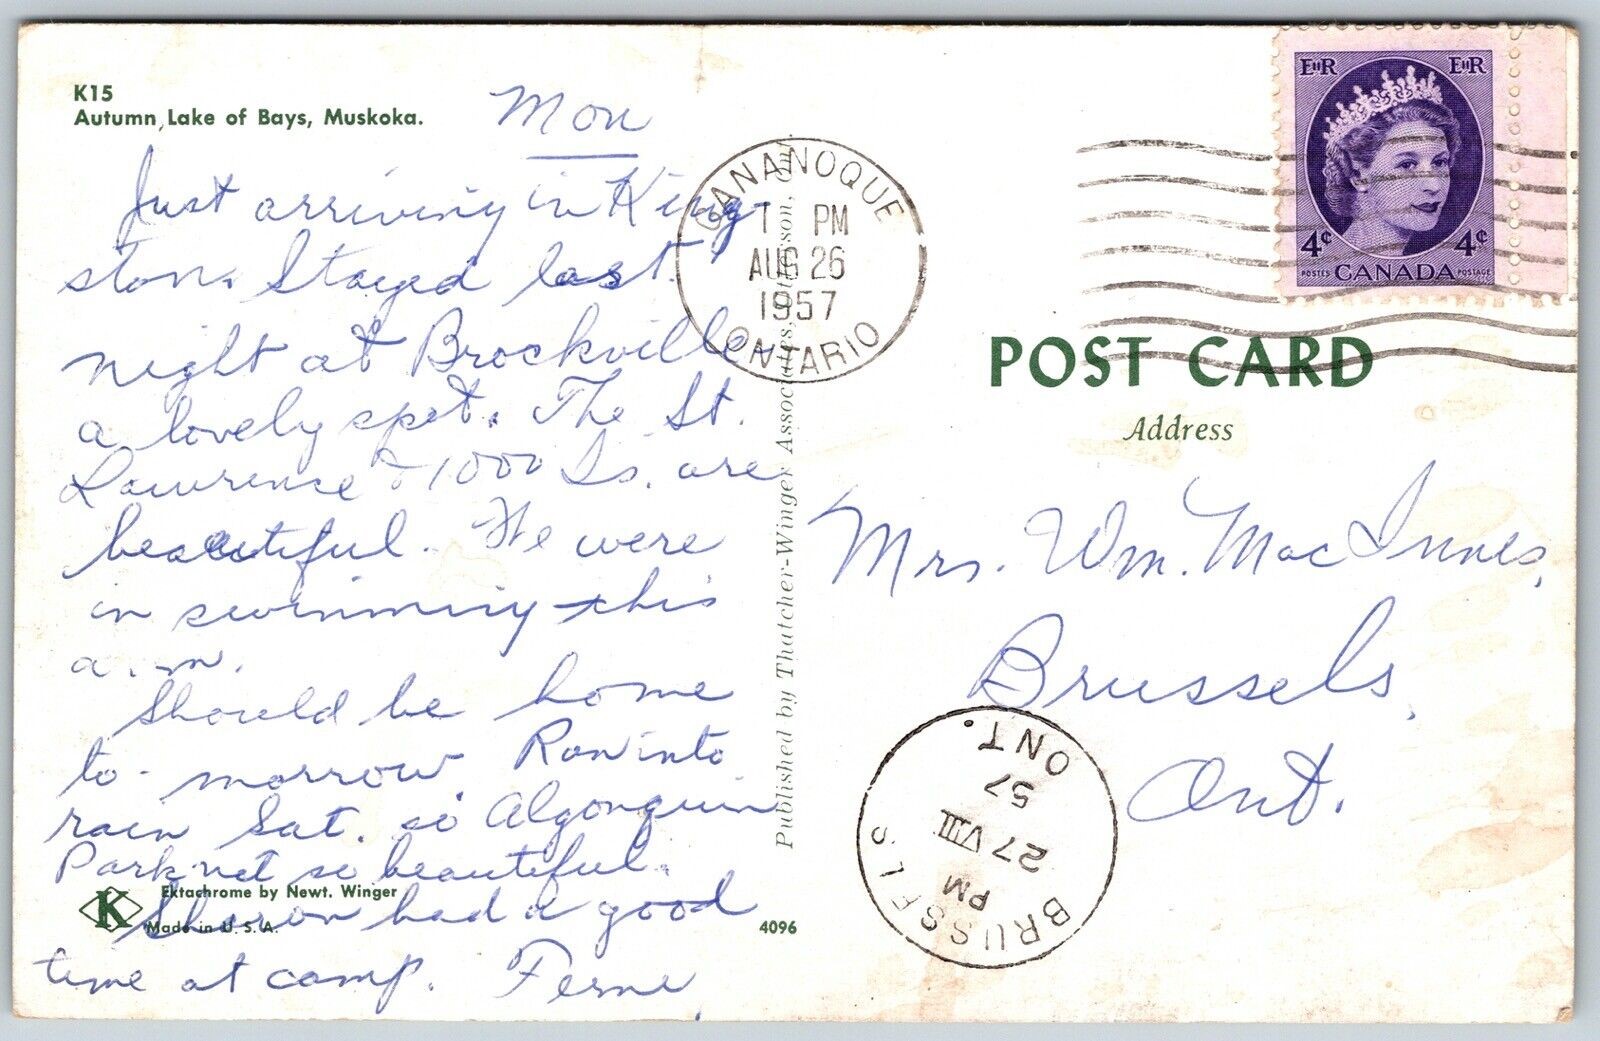 K15
Autumn, Lake of Bays, Muskoka.
Mon
Just arriving in King-
ston. Stayed last
night at Brockville
a lovely spot. The St.
Lawrence & 1000 Is. are
beautiful. We were
in swimming this
a.m.
Should be home
to-morrow. Ran into
rain Sat. so Algonquin
Park not so beautiful.
Sharon had a good
time at camp. Ferne
Ektachrome by Newt. Winger
K
Made in U. S. A.
4096
Published by Thatcher-Winger Associates,
GANANOQUE
1 PM
AUG 26
1957
ONTARIO
EIIR EIIR
4¢ 4¢
POSTES CANADA POSTAGE
POST CARD
Address
Mrs. Wm. MacInnes,
Brussels,
Ont.
BRUSSELS
PM
27 VIII
57
ONT.